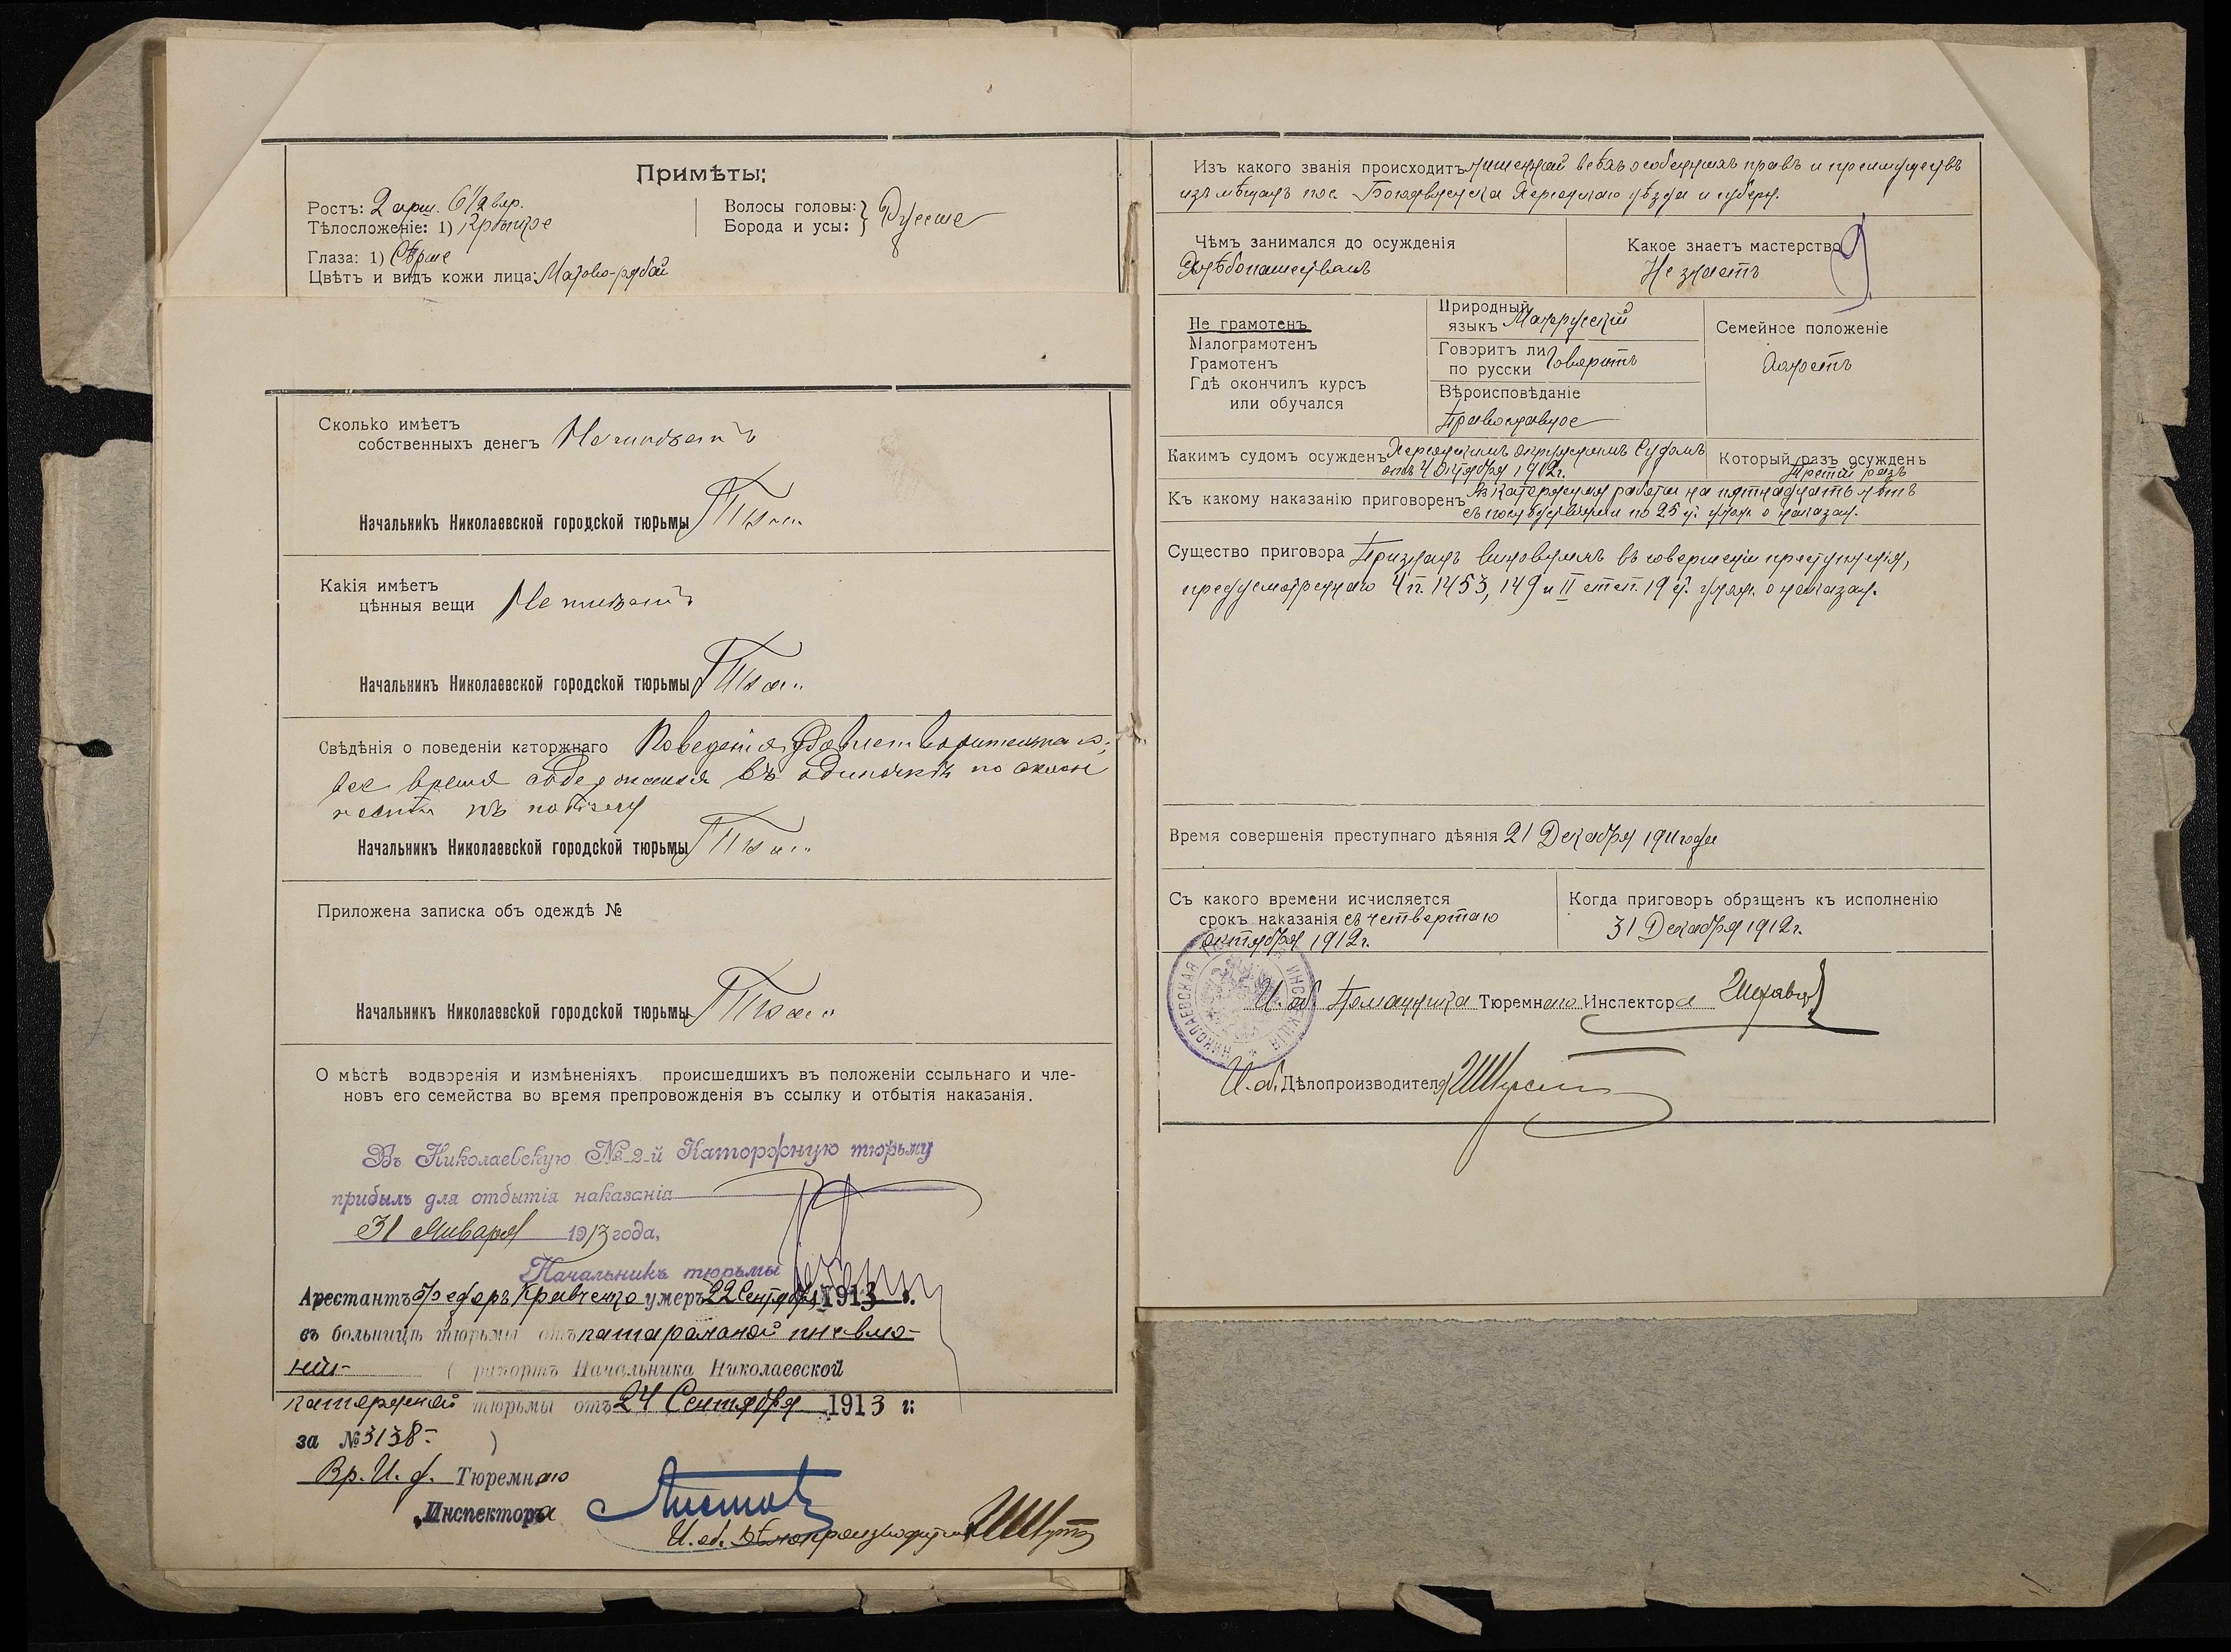 Примѣты:
Ростъ: 2 арш. 6 1/2 вер.
Тѣлосложеніе: 1) Крѣпкое
Глаза: 1) Сѣрые
Цвѣтъ и видъ кожи лица: Матово-рябой
Волосы головы: } Русые
Борода и усы:
Сколько имѣетъ
собственныхъ денегъ Не имѣетъ
Начальникъ Николаевской городской тюрьмы
Какія имѣетъ
цѣнныя вещи Не имѣетъ
Начальникъ Николаевской городской тюрьмы
Свѣдѣнія о поведеніи каторжнаго Поведенія удовлетворительнаго,
все время содержался въ одиночкѣ по склон
ности къ побѣгу
Начальникъ Николаевской городской тюрьмы
Приложена записка объ одеждѣ №
Начальникъ Николаевской городской тюрьмы
О мѣстѣ водворенія и измѣненіяхъ происшедшихъ въ положеніи ссыльнаго и чле-
новъ его семейства во время препровожденія въ ссылку и отбытія наказанія.
Въ Николаевскую № 2-й Каторжную тюрьму
прибылъ для отбытія наказанія
31 Января 1913 года,
Начальникъ тюрьмы
Арестантъ Федоръ Кравченко умеръ 22 Сентября 1913 г.
въ больницѣ тюрьмы отъ катаральной пневмо-
ніи- ( рапортъ Начальника Николаевской
каторжной тюрьмы отъ 24 Сентября 1913 г:
за № 3138- )
Вр. И. д. Тюремнаго
Инспектора
И. об. Дѣлопроизводителя
Изъ какого званія происходитъ лишенный всѣхъ особенныхъ правъ и преимуществъ
изъ мѣщанъ пос. Богоявленска Херсонскаго уѣзда и губерн.
Чѣмъ занимался до осужденія
Хлѣбопашествомъ
Какое знаетъ мастерство
Не знаетъ
9
Не грамотенъ
Малограмотенъ
Грамотенъ
Гдѣ окончилъ курсъ
или обучался
Природный
языкъ Малорусскій
Говоритъ ли
по русски Говоритъ
Вѣроисповѣданіе
Православное
Семейное положеніе
Холостъ
Какимъ судомъ осужденъ Херсонскимъ окружнымъ Судомъ
отъ 4 Октября 1912 г.
Который разъ осужденъ
Третій разъ
Къ какому наказанію приговоренъ Въ каторжныя работы на пятнадцать лѣтъ
съ послѣдствіями по 25 ст. улож. о наказан.
Существо приговора Признанъ виновнымъ въ совершеніи преступленія,
предусмотреннаго 4 п. 1453, 149 и II степ. 19 ст. улож. о наказан.
Время совершенія преступнаго дѣянія 21 Декабря 1911 года
Съ какого времени исчисляется
срокъ наказанія съ четвертаго
октября 1912 г.
Когда приговоръ обращенъ къ исполненію
31 Декабря 1912 г.
НИКОЛАЕВСКАЯ ИНСПЕКЦІЯ
И. об. Помощника Тюремнаго Инспектора
И. об. Дѣлопроизводителя